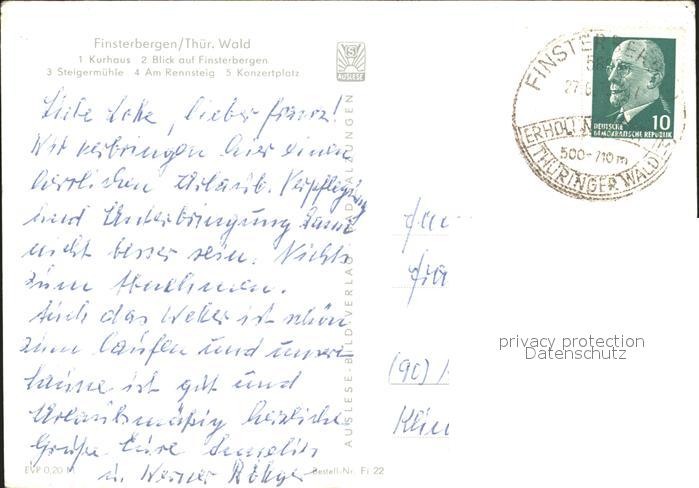 Finsterbergen/Thür. Wald
1 Kurhaus 2 Blick auf Finsterbergen
3 Steigermühle 4 Am Rennsteig 5 Konzertplatz
AUSLESE
Liebe Lotte, lieber Franz!
Wir verbringen hier einen
herrlichen Urlaub. Verpflegung
und Unterbringung kann
nicht besser sein. Nichts
zum Abnehmen.
Auch das Wetter ist schön
zum laufen und unsere
Laune ist gut und
Urlaubsmäßig herzliche
Grüße Eure
u. Werner
EVP 0,20 M
Bestell-Nr. Fi 22
AUSLESE-BILD-VERLAG BAD SALZUNGEN
FINSTERBERGEN
ERHOLUNGS
500-710 m
THÜRINGER WALD
10
DEUTSCHE
DEMOKRATISCHE REPUBLIK
(90)
privacy protection
Datenschutz